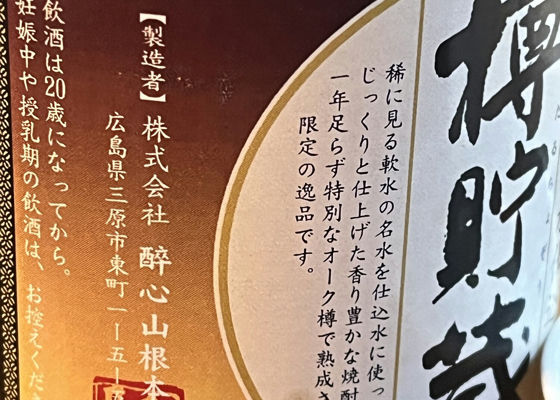 樽貯蔵
稀に見る軟水の名水を仕込水に使っ
じっくりと仕上げた香り豊かな焼酎
一年足らず特別なオーク樽で熟成さ
限定の逸品です。
【製造者】株式会社 醉心山根本
広島県三原市東町一ー五ー
飲酒は20歳になってから。
妊娠中や授乳期の飲酒は、お控えくださ